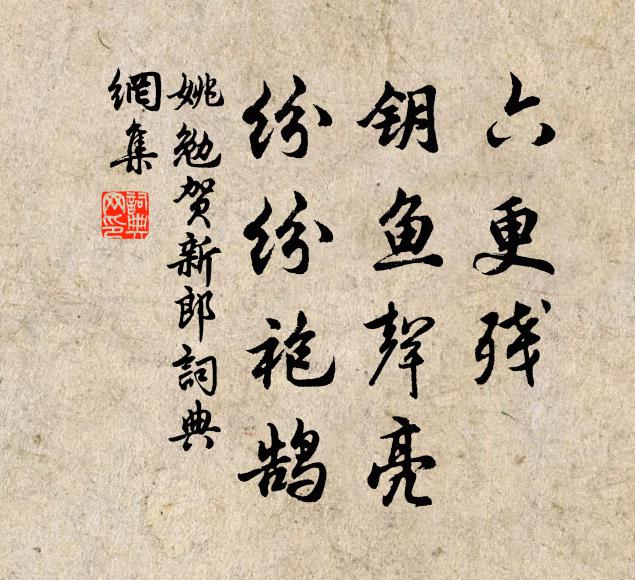 六更残
钥鱼声亮
纷纷袍鹄
姚勉贺新郎词典
網集
詞典
网印